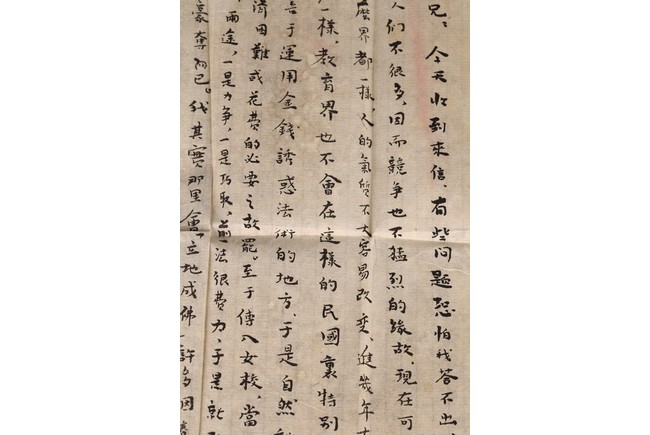 兄：今天收到來信，有些问題恐怕我答不出，
人们不很多，因而競争也不猛烈的緣故，现在可
麽界都一樣，人的氣质不大容易改变，進幾年大
一樣，教育界也不會在這樣的民國裏特别
于運用金錢誘惑法術的地方，于是自然
濟困難或花费的必要之故罷。至于傳入女校，當
兩途，一是力争，一是巧取，前法很费力，于是就
豪奪而已。我其實那里會“立地成佛”，許多因